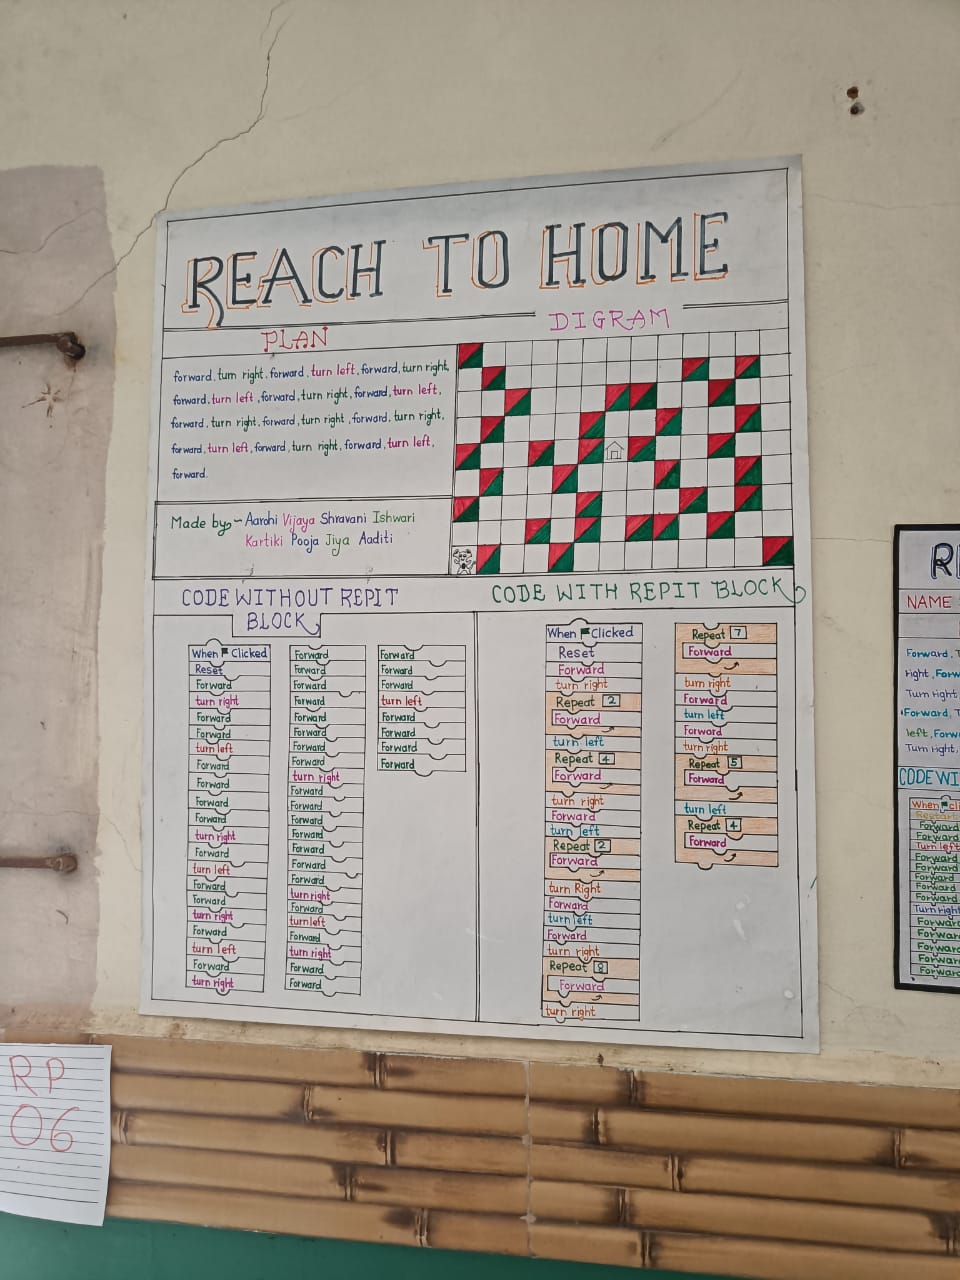 REACH TO HOME
PLAN
forward, turn right, forward, turn left, forward, turn right,
forward, turn left, forward, turn right, forward, turn left,
forward, turn right, forward, turn right, forward, turn right,
forward, turn left, forward, turn right, forward, turn left,
forward.
Made by - Aarohi Vijaya Shravani Ishwari
Kartiki Pooja Jiya Aaditi
DIGRAM
CODE WITHOUT REPIT
BLOCK
When Clicked
Reset
Forward
turn right
Forward
Forward
turn left
Forward
Forward
Forward
Forward
turn right
Forward
turn left
Forward
Forward
turn right
Forward
turn left
Forward
turn right
Forward
Forward
Forward
Forward
Forward
Forward
Forward
Forward
turn right
Forward
Forward
Forward
Forward
Forward
Forward
Forward
turn right
Forward
turn left
Forward
turn right
Forward
Forward
Forward
Forward
Forward
turn left
Forward
Forward
Forward
Forward
CODE WITH REPIT BLOCK
When Clicked
Reset
Forward
turn right
Repeat 2
Forward
turn left
Repeat 4
Forward
turn right
Forward
turn left
Repeat 2
Forward
turn Right
Forward
turn left
Forward
turn right
Repeat 8
Forward
turn right
Repeat 7
Forward
turn right
Forward
turn left
Forward
turn right
Repeat 5
Forward
turn left
Repeat 4
Forward
RP
06
NAME
Forward,
right, Forw
Turn right
Forward, T
left, Forw
Turn right,
CODE WI
When cli
Forward
Forward
Turn left
Forward
Forward
Forward
Forward
Forward
Turn right
Forward
Forward
Forward
Forward
Forward